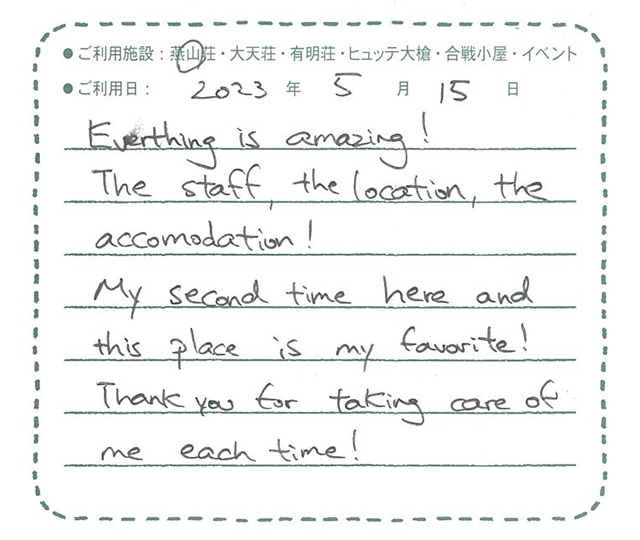 ● ご利用施設：燕山荘・大天荘・有明荘・ヒュッテ大槍・合戦小屋・イベント
● ご利用日： 2023 年 5 月 15 日
Everthing is amazing!
The staff, the location, the
accomodation!
My second time here and
this place is my favorite!
Thank you for taking care of
me each time!